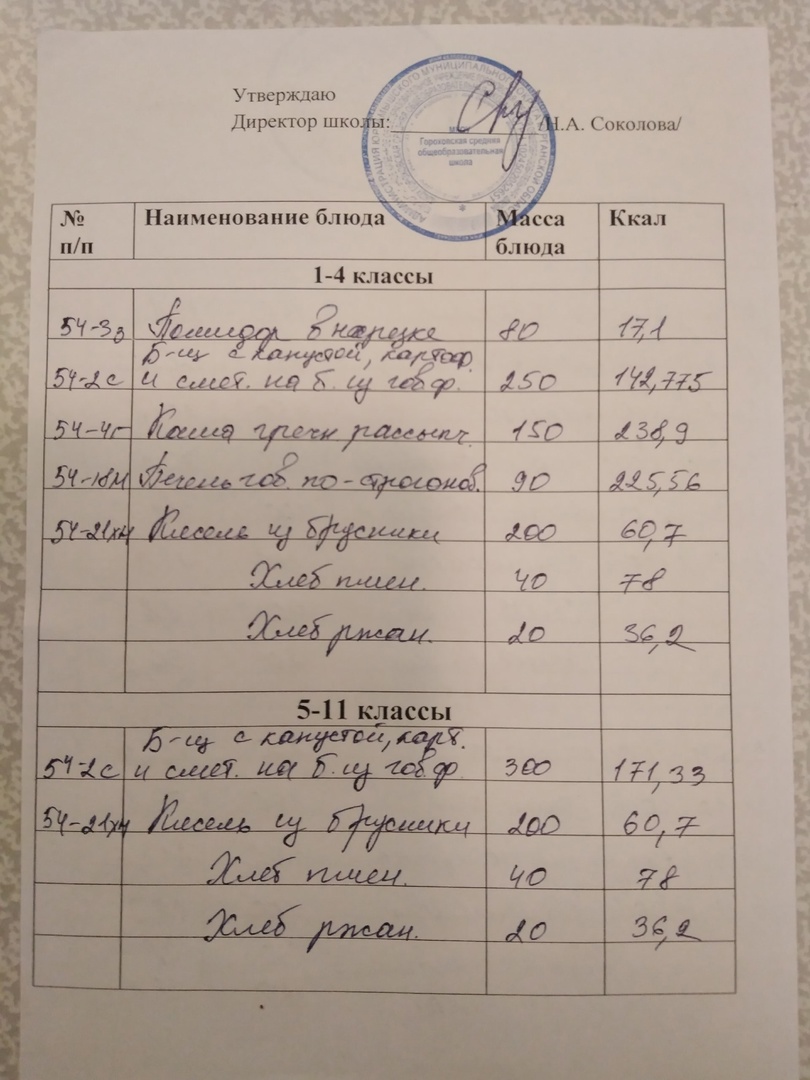 Утверждаю
Директор школы: /Н.А. Соколова/
Гороховская средняя
общеобразовательная
школа
№ Наименование блюда Масса Ккал
п/п блюда
1-4 классы
54-3з Помидор в нарезке 80 17,1
Б-щ с капустой, картоф.
54-2с и смет. на б. из гов.ф. 250 142,775
54-4г Каша гречн рассыпч. 150 238,9
54-18м Печень гов. по-строганов. 90 225,56
54-21хн Кисель из брусники 200 60,7
Хлеб пшен. 40 78
Хлеб ржан. 20 36,2
5-11 классы
Б-щ с капустой, карт.
54-2с и смет. на б. из гов.ф 300 171,33
54-21хн Кисель из брусники 200 60,7
Хлеб пшен. 40 78
Хлеб ржан. 20 36,2